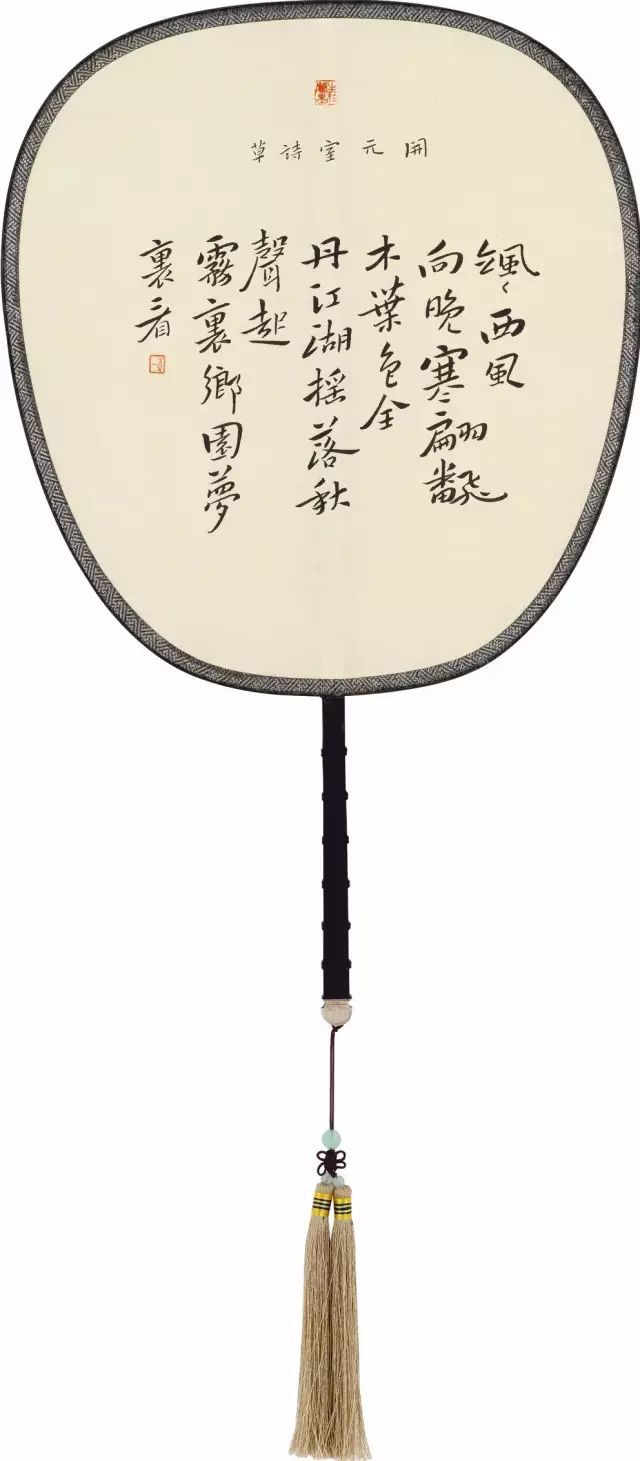 開元室詩草
颯〻西風
向晚寒翩飜
木葉色全
丹江湖搖落秋
聲起
霧裏鄉園夢
裏看